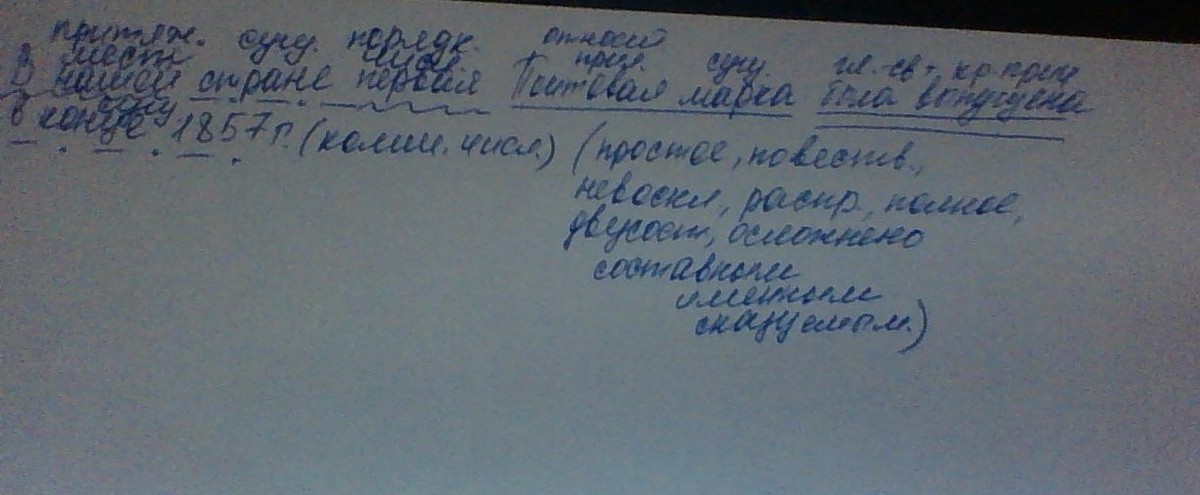 притяж. сущ. порядк. относит
мест числ прил. сущ. гл.-св + кр. прич
В нашей стране первая Почтовая марка была выпущена
сущ
в конце 1857 г. (колич. числ.) (простое, повеств.,
невоскл, распр., полное,
двусост, осложнено
составным
именным
сказуемым.)